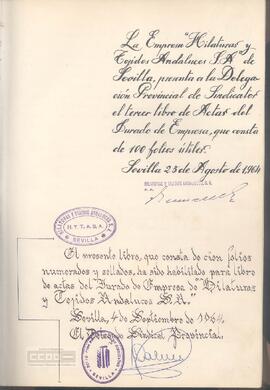 La Empresa "Hilaturas y
Tejidos Andaluces S.A" de
Sevilla, presenta a la Delega-
ción Provincial de Sindicatos
el tercer libro de Actas del
Jurado de Empresa, que consta
de 100 folios útiles.
Sevilla 25 de Agosto de 1964
HILATURAS Y TEJIDOS ANDALUCES, S. A.
HILATURAS Y TEJIDOS ANDALUCES S.A.
H.Y.T.A.S.A.
SEVILLA
El presente libro, que consta de cien folios
numerados y sellados, ha sido habilitado para libro
de actas del Jurado de Empresa de "Hilaturas
y Tejidos Andaluces S.A."
Sevilla, 4 de Septiembre de 1964.
El Delegado Sindical Provincial.
SEVILLA